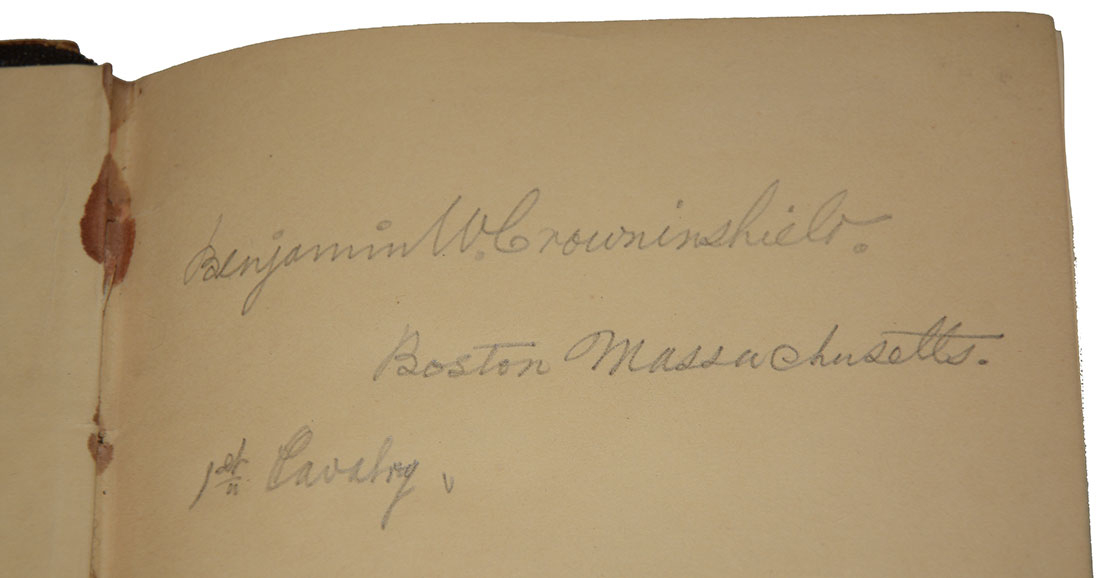 Benjamin W. Crowninshield.
Boston Massachusetts.
1st Cavalry,